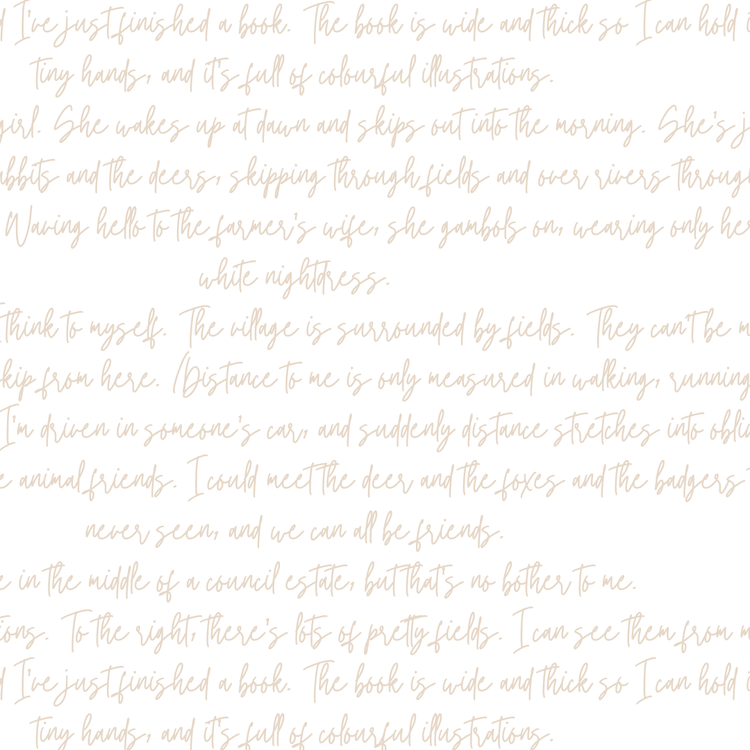 I've just finished a book. The book is wide and thick so I can hold
tiny hands, and it's full of colourful illustrations.
girl. She wakes up at dawn and skips out into the morning. She's
and the deers, skipping through fields and over rivers through
Waving hello to the farmer's wife, she gambols on, wearing only her
white nightdress.
think to myself. The village is surrounded by fields. They can't be
from here. (Distance to me is only measured in walking, running
I'm driven in someone's car, and suddenly distance stretches into
animal friends. I could meet the deer and the foxes and the badgers
never seen, and we can all be friends.
in the middle of a council estate, but that's no bother to me.
To the right, there's lots of pretty fields. I can see them from
I've just finished a book. The book is wide and thick so I can hold
tiny hands, and it's full of colourful illustrations.